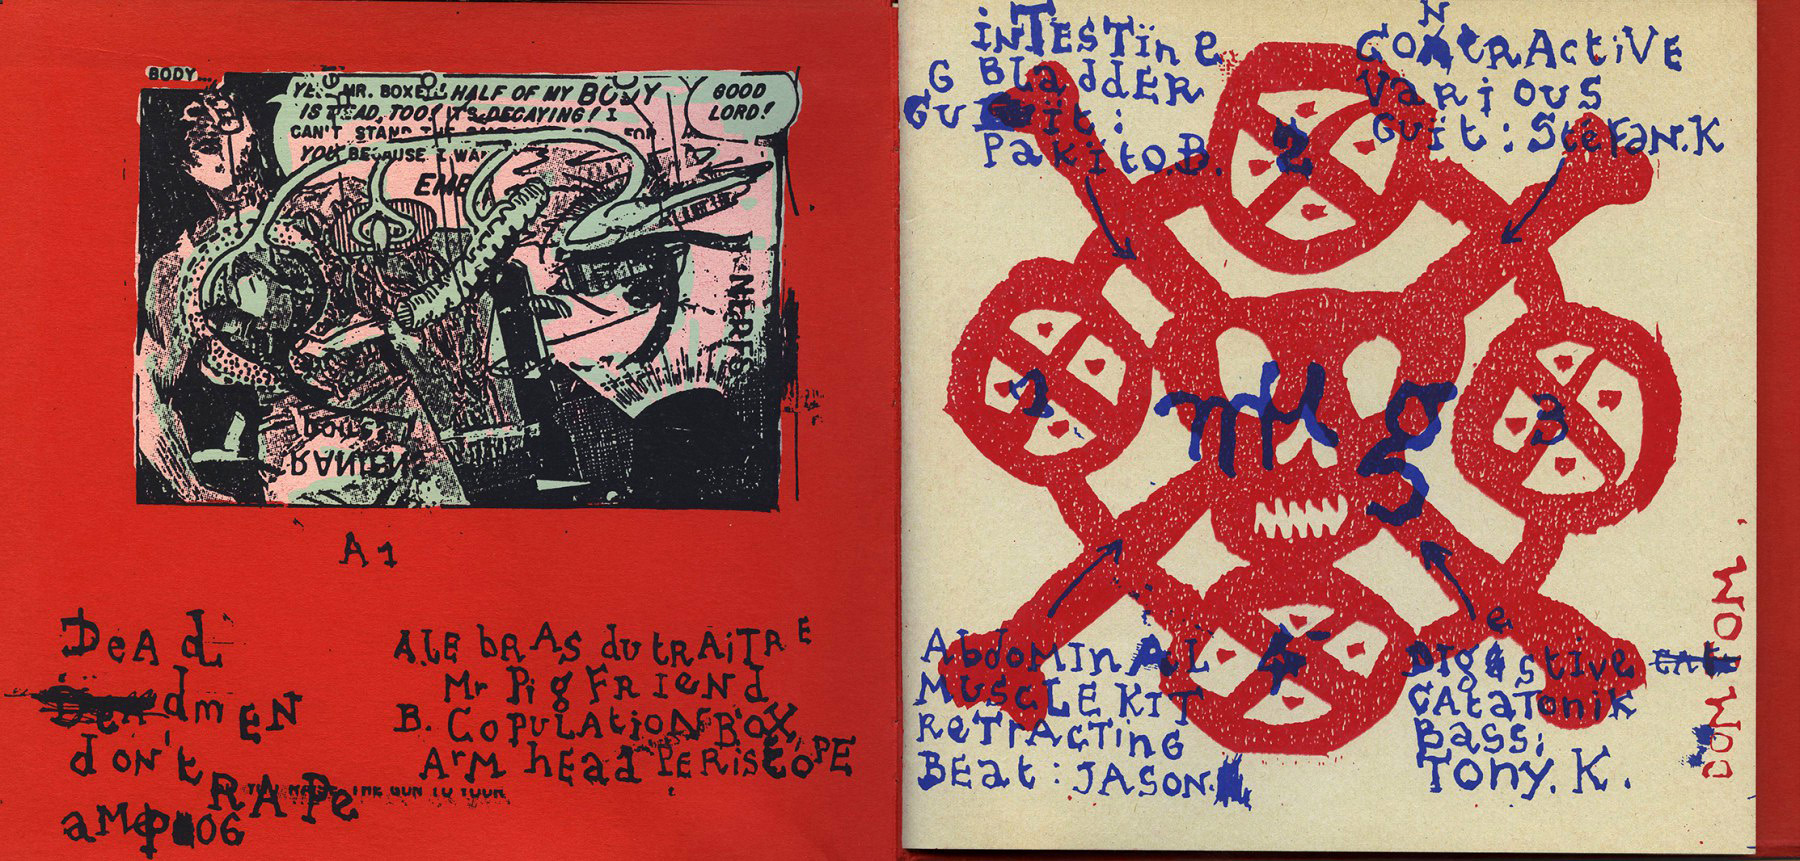 BODY...
YES MR. BOXELL! HALF OF MY BODY
IS DEAD, TOO! IT'S DECAYING! I
CAN'T STAND THE
YOU BECAUSE I WA
EME
GOOD
LORD!
A1
DeAd
dmEN
don't
RAPe
amep 06
A.LE bRAS du tRAiTRE
Mr Pig FRIENd
B. COPULAtiON BOX
ArM head PERiSCOPE
iNTESTinE
G BLadder
Guit:
PakitO.B.
CONtRActiVE
VaRiOUS
Guit: StéfaN.K
2
1
3
4
mµg
AbdoMInAL
MUSCLE KIT
ReTrACTinG
BEat: JASON.
Digestive
CAtaTonik
BASS:
Tony.K.